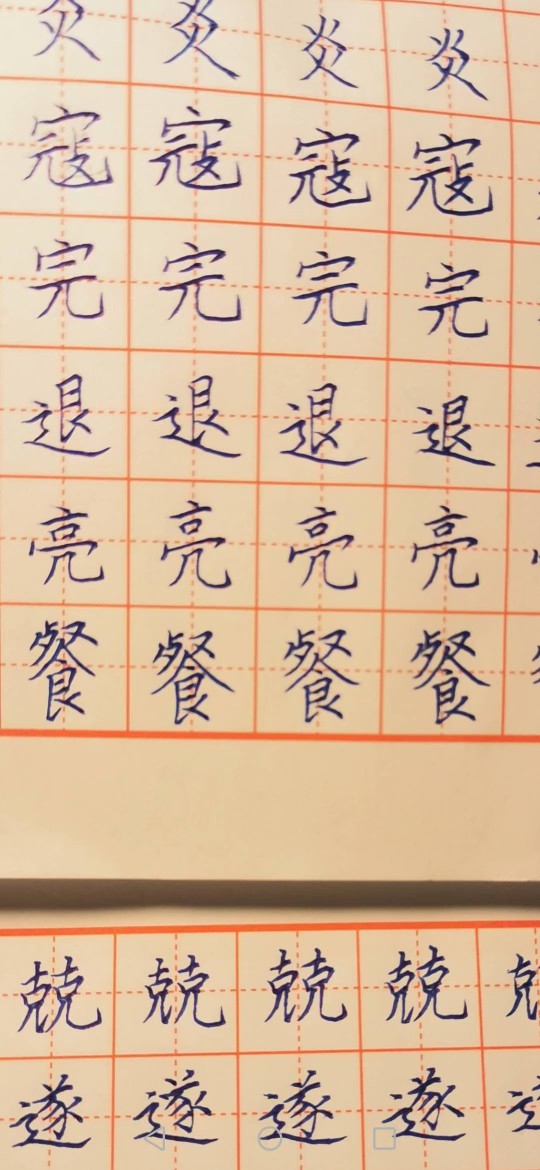 炎 炎 炎 炎
寇 寇 寇 寇
完 完 完 完
退 退 退 退
亮 亮 亮 亮
餐 餐 餐 餐
兢 兢 兢 兢
遂 遂 遂 遂